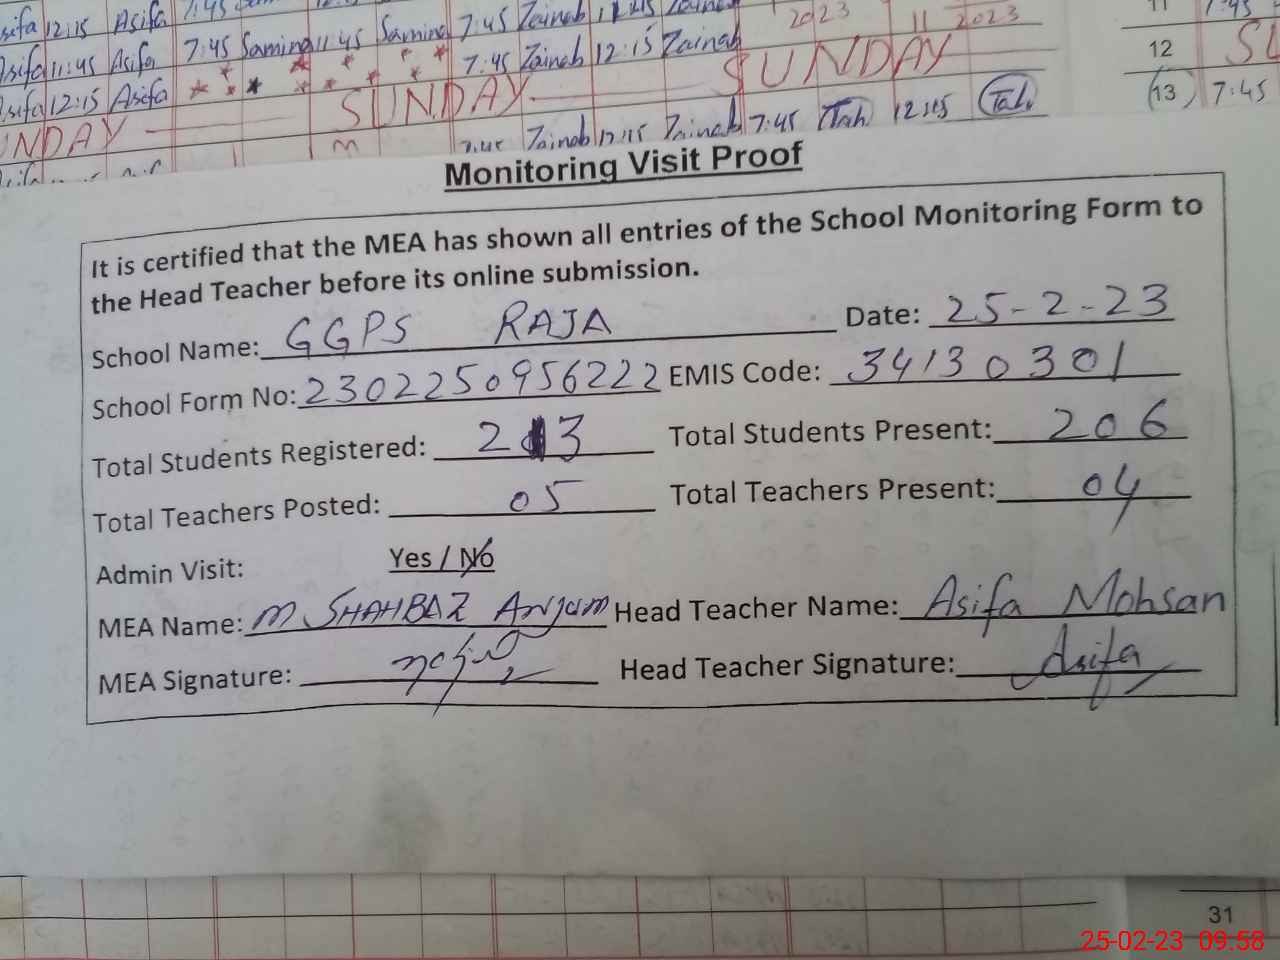 sifa 12:15 Asifa 7:45 7:45 Zainab 11:45 Zainab 2023 11 2023 11 7:45
Asifa 11:45 Asifa 7:45 Samina 11:45 Samina 7:45 Zainab 12:15 Zainab SUNDAY 12 SU
sifa 12:15 Asifa SUNDAY (13) 7:45
UNDAY 7:45 Zainab 12:15 Zainab 7:45 Tah 12:15 Tah
Monitoring Visit Proof
It is certified that the MEA has shown all entries of the School Monitoring Form to
the Head Teacher before its online submission.
School Name: GGPS RAJA Date: 25-2-23
School Form No: 2302250956222 EMIS Code: 34130301
Total Students Registered: 213 Total Students Present: 206
Total Teachers Posted: 05 Total Teachers Present: 04
Admin Visit: Yes / No
MEA Name: M SHAHBAZ ANJUM Head Teacher Name: Asifa Mohsan
MEA Signature: Head Teacher Signature: Asifa
31
25-02-23 09:58